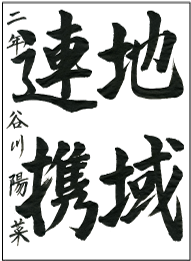 地域
連携
二年 谷川陽菜